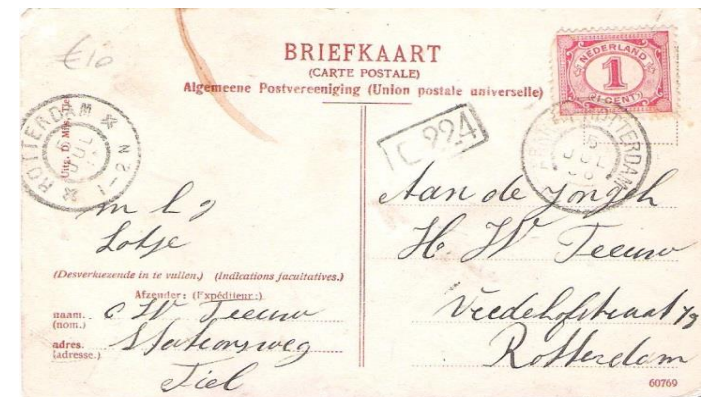 €10
BRIEFKAART
(CARTE POSTALE)
Algemeene Postvereeniging (Union postale universelle)
NEDERLAND
1
CENT
ROTTERDAM
JUL
1-2N
Uitg.
C 224
ROTTERDAM
16
JUL
m l g
Lotje
(Desverkiezende in te vullen.) (Indications facultatives.)
Afzender: (Expéditeur:)
naam. C W Teeuw
(nom.)
adres. Stationsweg
(adresse.)
Tiel
Aan de Jongeh
H. W Teeuw
Rotterdam
60769